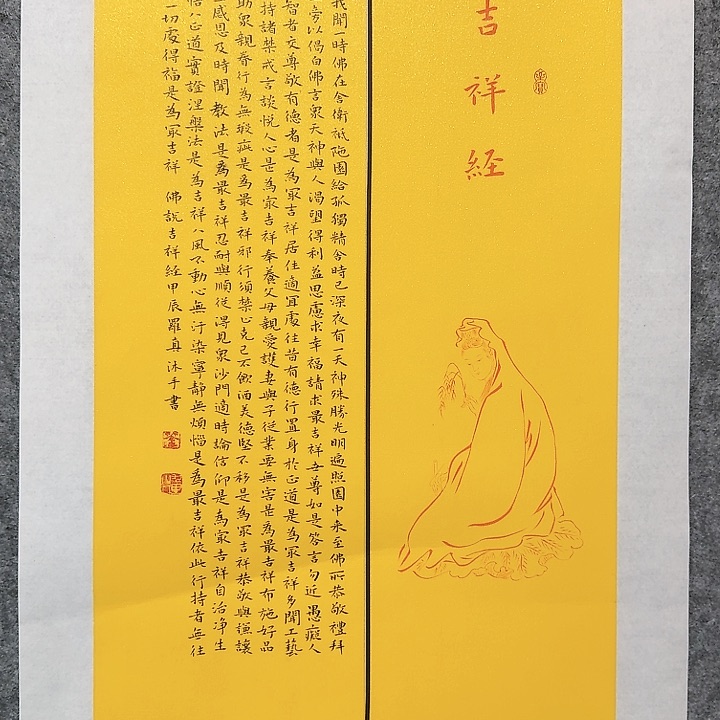 吉祥経
我聞一時佛在舍衛祇陁園給孤獨精舍時已深夜有一天神殊勝光明遍照園中来至佛所恭敬禮拜
旁以偈白佛言衆天神與人渴望得利益思慮求幸福請求最吉祥世尊如是答言勿近愚癡人
智者交尊敬有德者是為冣吉祥居住適冝處往昔有德行置身於正道是為冣吉祥多聞工藝
持諸禁戒言談悦人心是為冣吉祥奉養父母親愛護妻與子從業要無害是為最吉祥布施好品
助衆親眷行為無瑕疵是為最吉祥邪行須禁止克己不飲酒美德堅不移是為冣吉祥恭敬與謙讓
感恩及時聞教法是為最吉祥忍耐與順從得見衆沙門適時論信仰是為冣吉祥自治淨生
悟八正道實證涅槃法是為吉祥八風不動心無汙染寧靜無煩惱是為最吉祥依此行持者無往
一切處得福是為冣吉祥 佛說吉祥経甲辰羅真沐手書